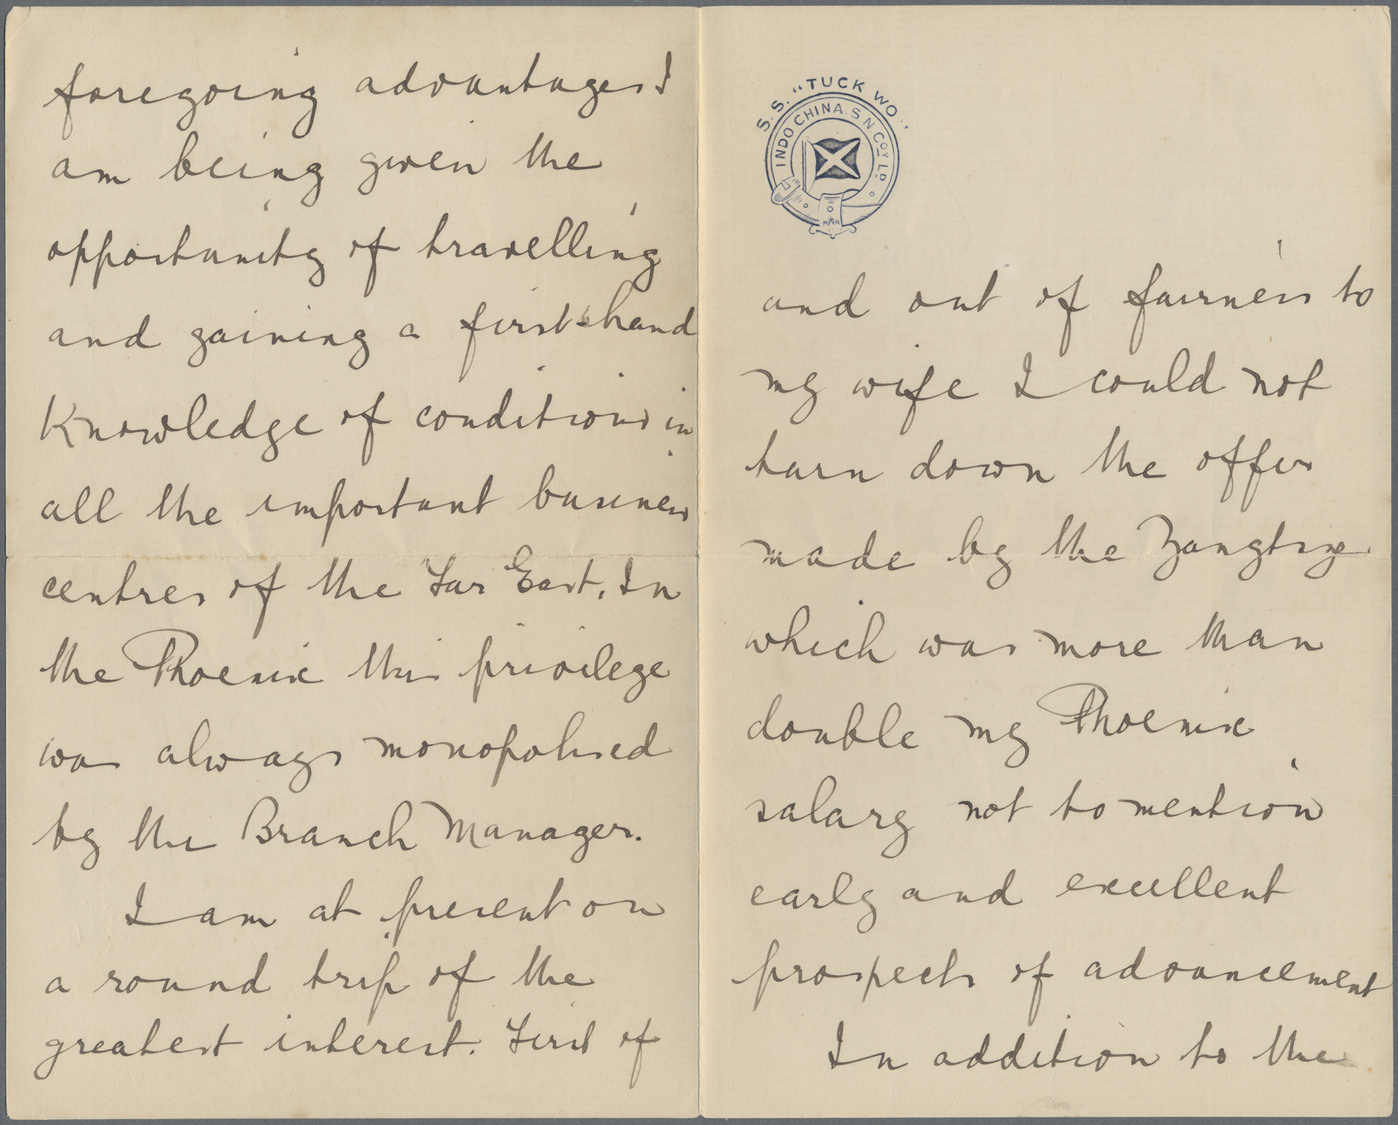 S.S. "TUCK WO"
INDO CHINA. S N COY LD.
and out of fairness to
my wife I could not
turn down the offer
made by the Yangtsze
which was more than
double my Phoenix
salary not to mention
early and excellent
prospects of advancement
In addition to the
foregoing advantages I
am being given the
opportunity of travelling
and gaining a first-hand
Knowledge of conditions in
all the important business
centres of the Far East. In
the Phoenix this privilege
was always monopolised
by the Branch Manager.
I am at present on
a round trip of the
greatest interest. First of